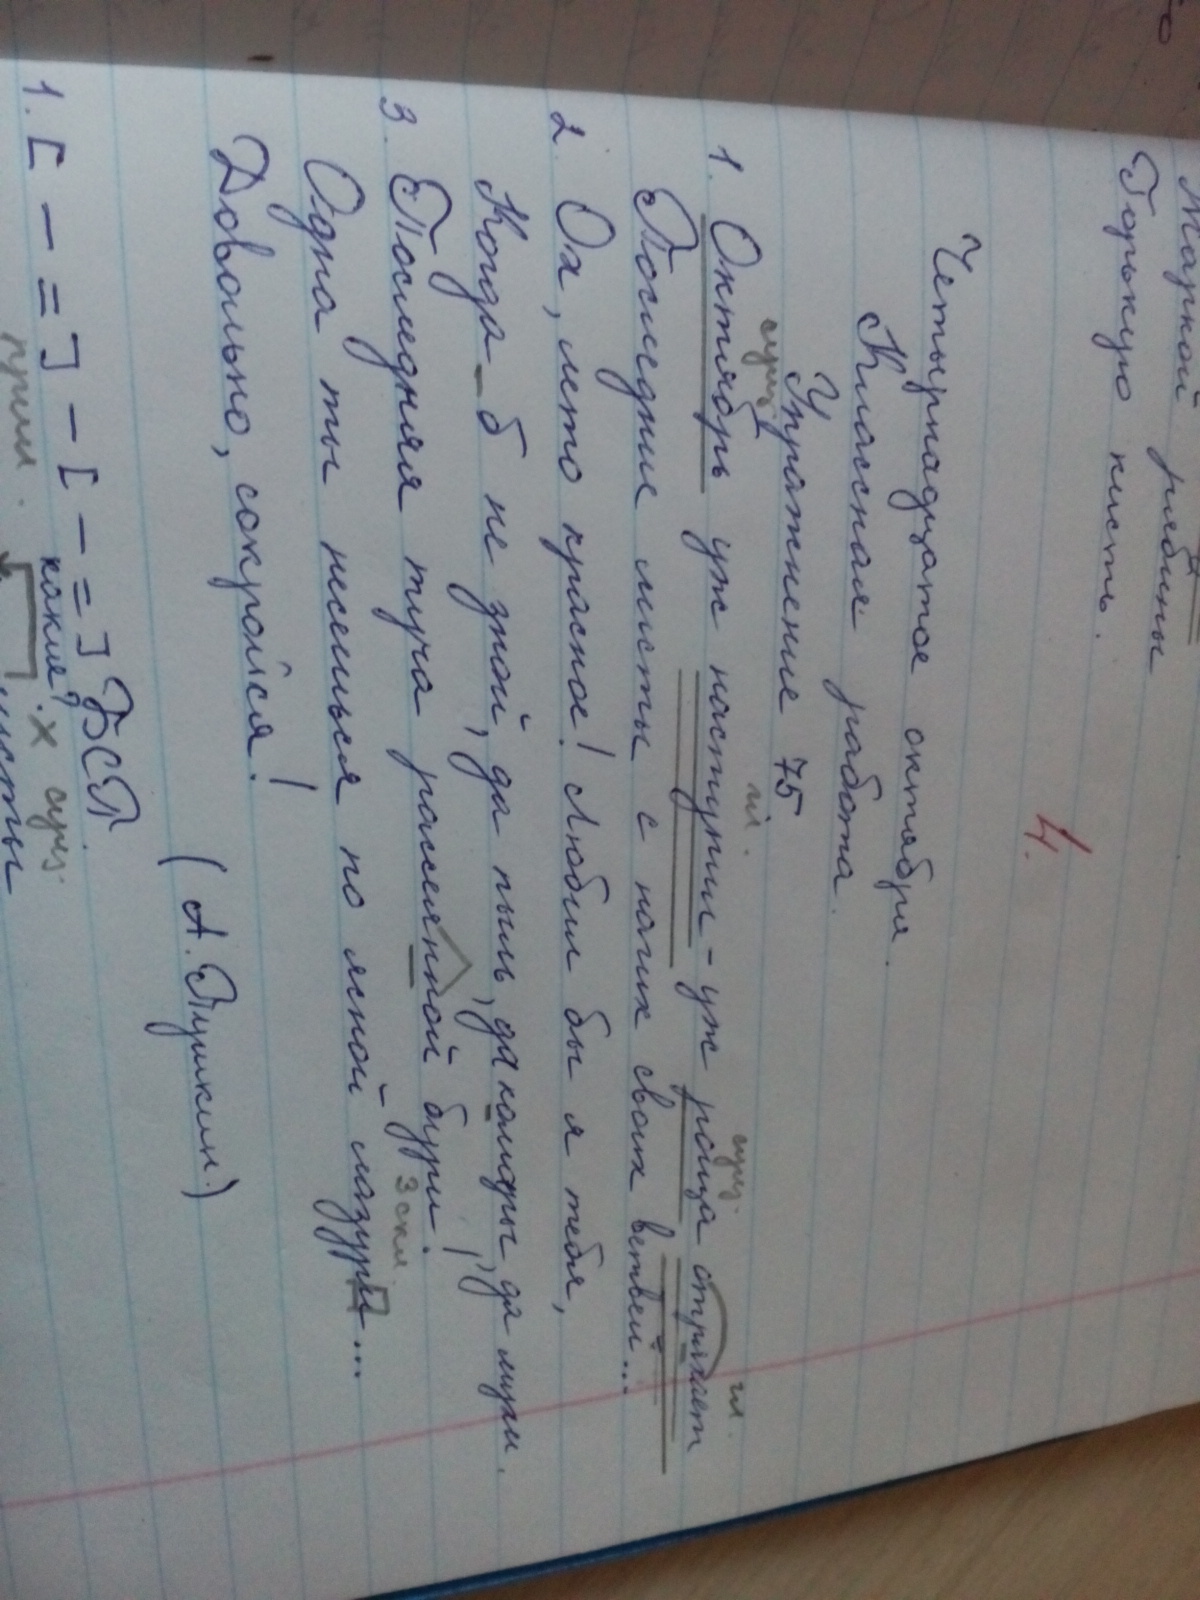 Жаркой рябины
Горькую кисть.
4.
Четырнадцатое октября.
Классная работа.
Упражнение 75
сущ. гл. сущ. гл.
1. Октябрь уж наступил - уж роща отряхает
Последние листы с нагих своих ветвей...
2. Ох, лето красное! Любил бы я тебя,
Когда б не зной, да пыль, да комары, да мухи.
3. Последняя туча рассеянной бури!
3 скл.
Одна ты несешься по ясной лазури...
Довольно, сокройся!
(А. Пушкин.)
1. [ - = ] - [ - = ] БСП.
какие? х сущ.
прил. листы